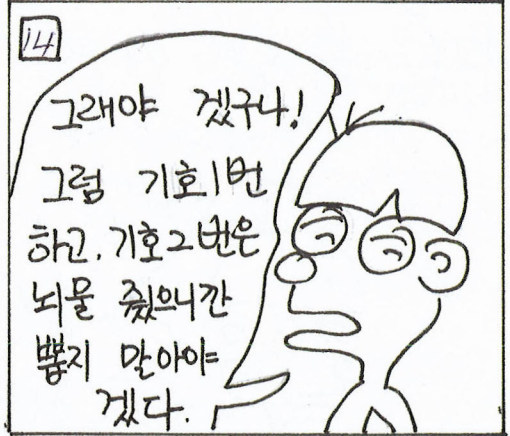 14
그래야 겠구나!
그럼 기호1번
하고, 기호2번은
뇌물 줬으니깐
뽑지 말아야
겠다.